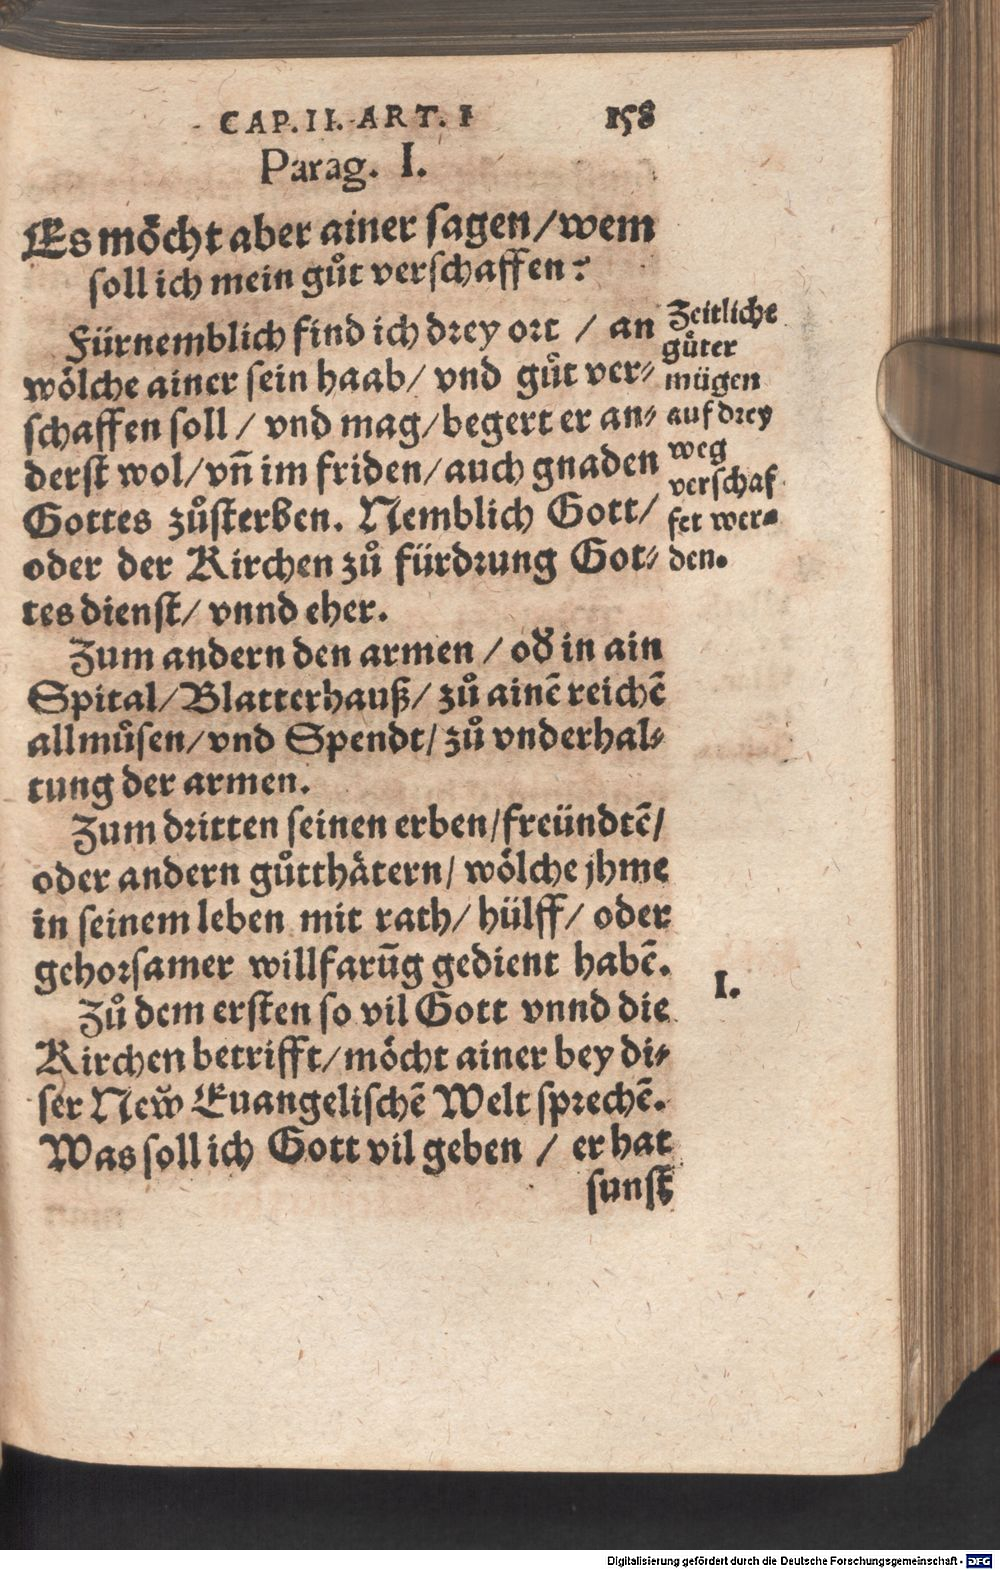 CAP. II. ART. I 158
Parag. I.
Es möcht aber ainer sagen / wem
soll ich mein gůt verschaffen?
Fürnemblich find ich drey ort / an
wölche ainer sein haab / vnd gůt ver⸗
schaffen soll / vnd mag / begert er an⸗
derst wol / vñ im friden / auch gnaden
Gottes zůsterben. Nemblich Gott /
oder der Kirchen zů fürdrung Got⸗
tes dienst / vnnd eher.
Zeitliche
gůter
mügen
auf drey
weg
verschaf
fet wer⸗
den.
Zum andern den armen / oď in ain
Spital / Blatterhauß / zů ainẽ reichẽ
allmůsen / vnd Spendt / zů vnderhal⸗
tung der armen.
Zum dritten seinen erben / freündtẽ /
oder andern gůtthätern / wölche jhme
in seinem leben mit rath / hülff / oder
gehorsamer willfarũg gedient habẽ.
I.
Zů dem ersten so vil Gott vnnd die
Kirchen betrifft / möcht ainer bey di⸗
ser New̆ Euangelischẽ Welt sprechẽ.
Was soll ich Gott vil geben / er hat
sunst
Digitalisierung gefördert durch die Deutsche Forschungsgemeinschaft - DFG